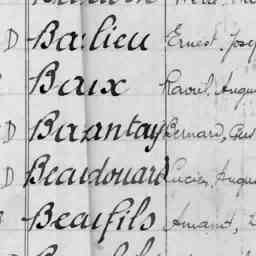 D Barlieu Ernest, Jose
Baux Raoul, Augu
D Bazantay Bernard,
D Beaudouard Lucien, Augu
Beaufils Amand,